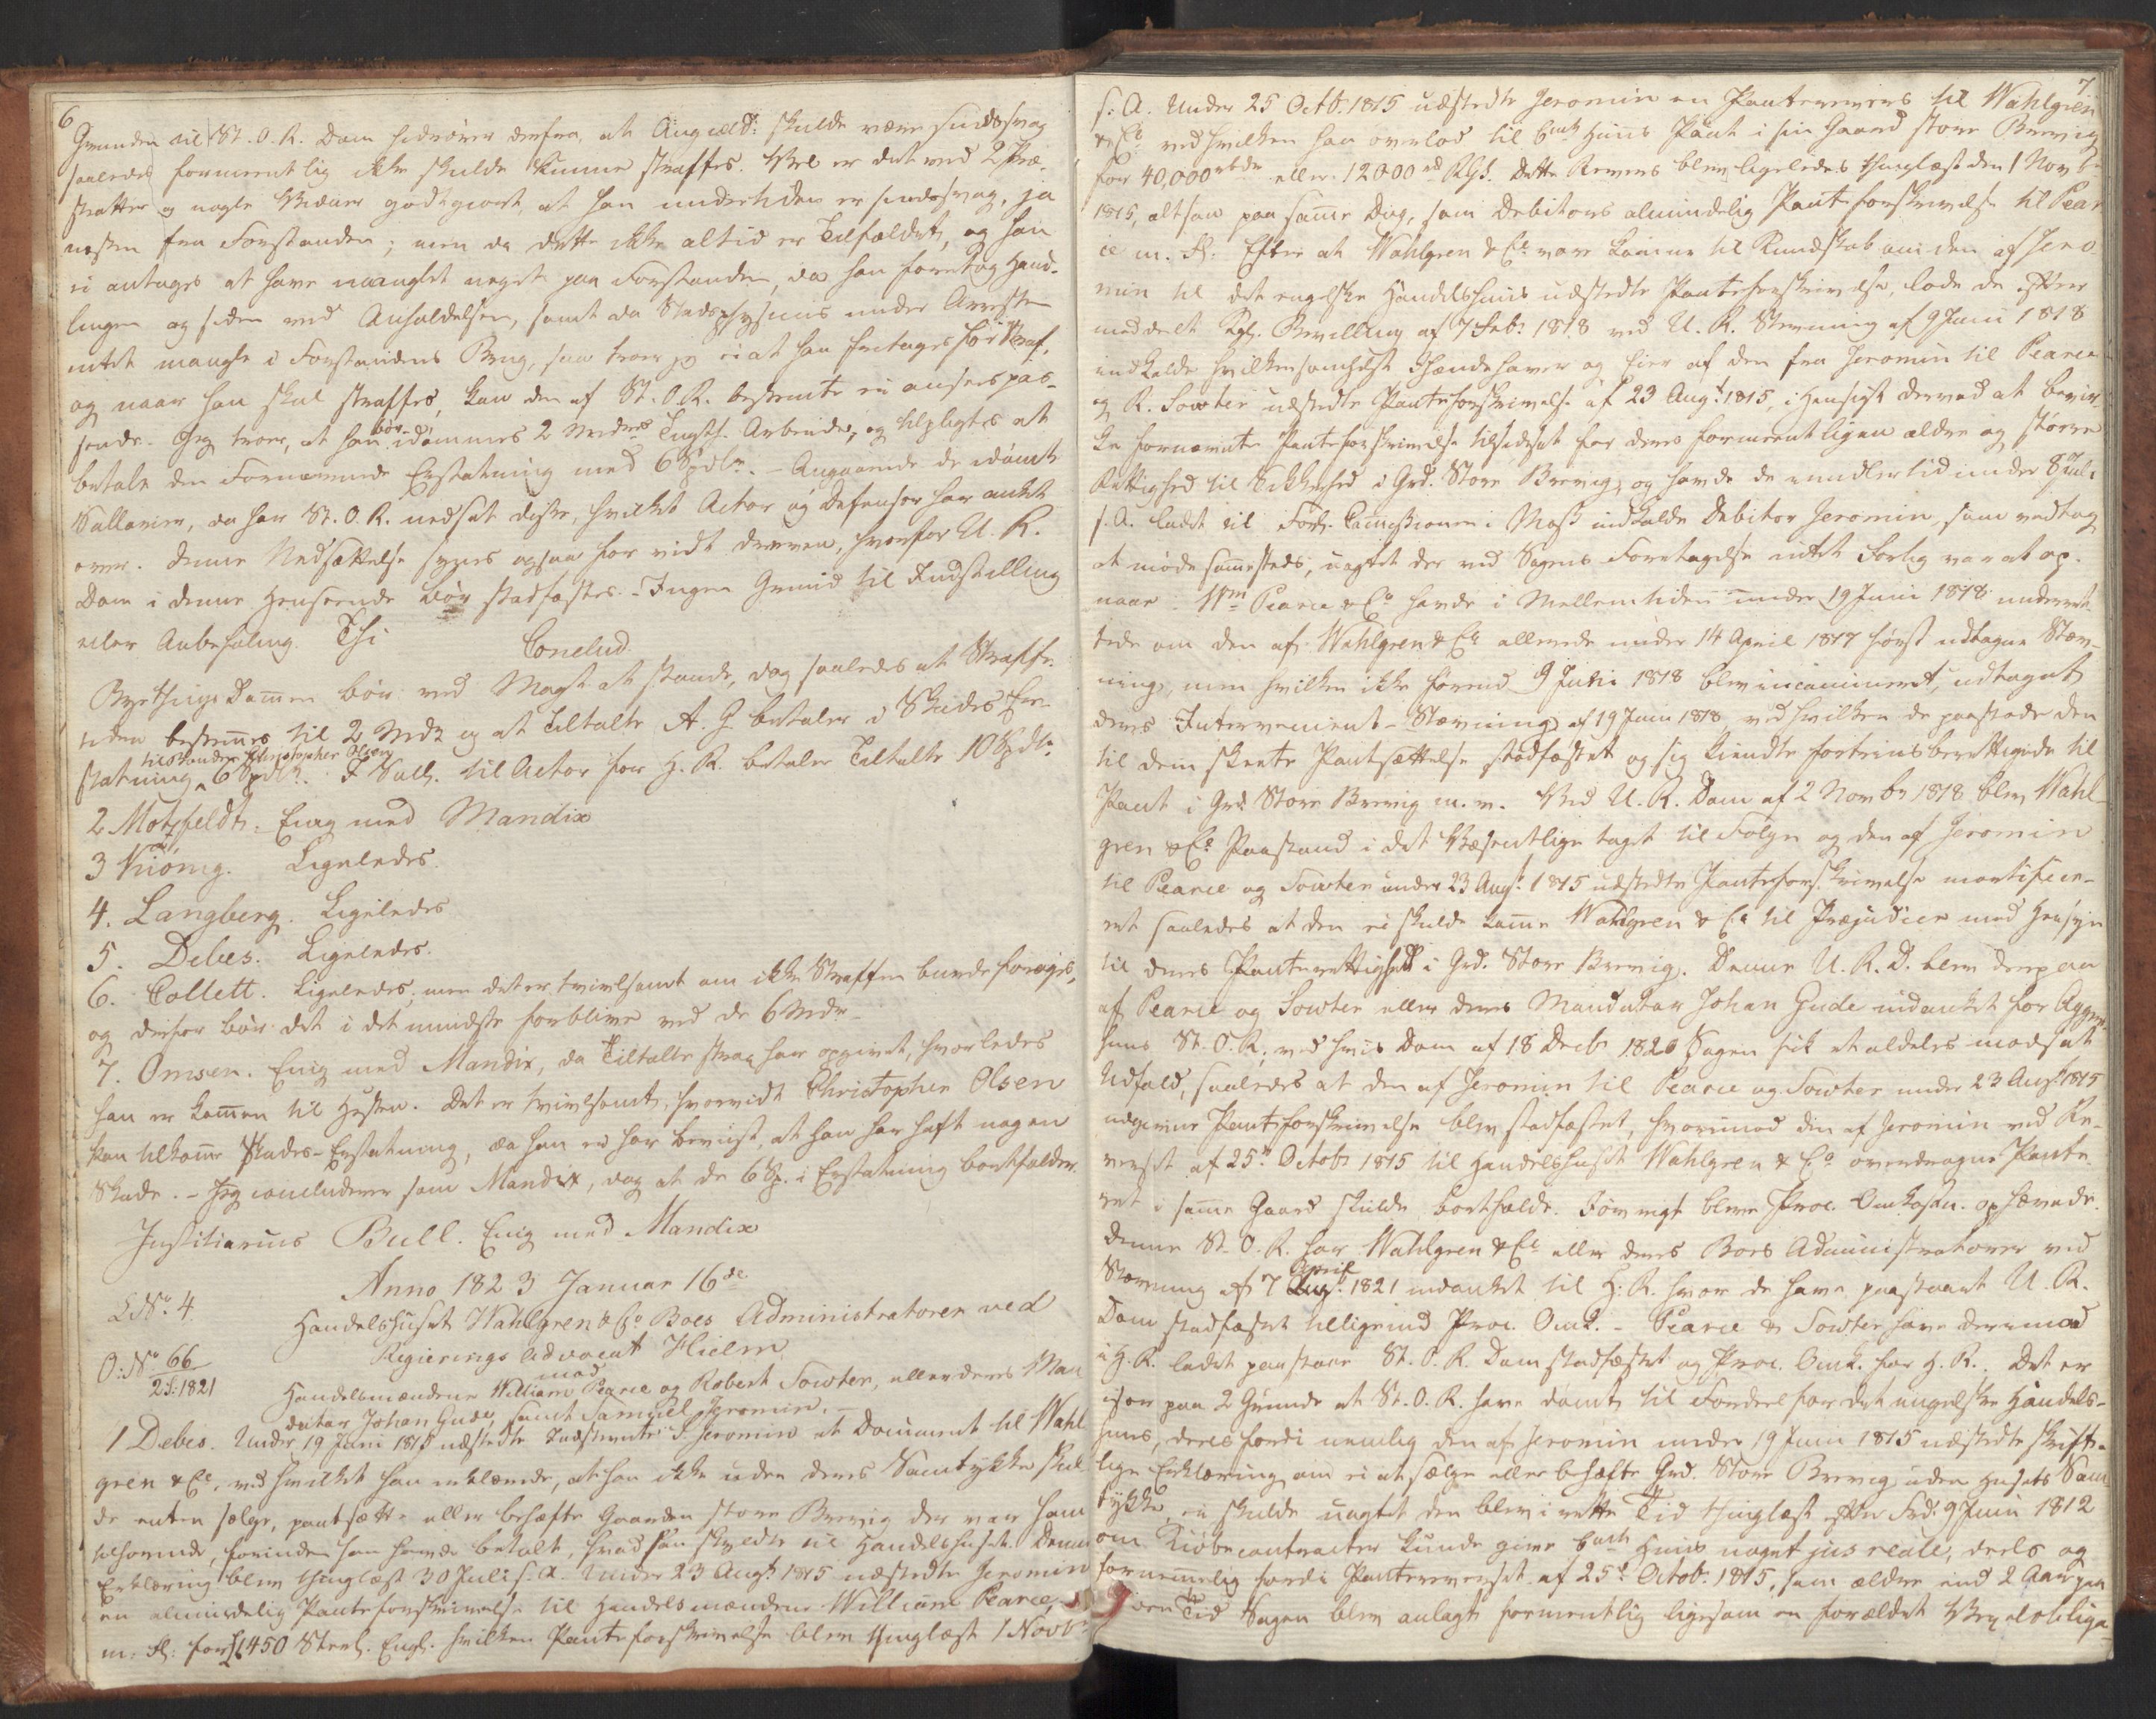 6
Grunden til St. O. R. Dom hidrører derfra, at Angield: skulde være sindssvag
saaledes formeentlig ikke skulde kunne straffes. Vel er det ved 2 Præ-
stratter og nogle Vidner godtgjort, at han undertiden er sindssvag, ja
næsten fra Forstanden; men da dette ikke altid er Tilfældet, og han
ei antages at have manglet noget paa Forstanden, da han foretog Hand-
lingen og siden ved Anholdelsen, samt da Stadsphysicus under Arresten
intet mangle i Forstandens Brug, saa troer jeg ei at han fritages for Straf,
og naar han skal straffes, kan den af St. O. R. bestemte ei ansees pas-
sende. Jeg troer, at han bør idømmes 2 Mdrs Tugth. Arbeide, og tilpligtes at
betale den Fornærmede Erstatning med 6 Spdlr. - Angaaende de idømte
Sallarier, da har St. O. R. nedsat disse, hvilket Actor og Defensor har anket
over. Denne Nedsættelse synes ogsaa for vidt dreven, hvorfor U. R.
Dom i denne Henseende bør stadfæstes. - Ingen Grund til Indstilling
eller Anbefaling. Thi
Conclud.
Byethings Dommen bør ved Magt at stande, dog saaledes at Straffe-
tiden bestemmes til 2 Mdr og at Tiltalte A. G. betaler i Skades Er-
statning til Christopher Olsen 6 Spdlr. I Sall. til Actor for H. R. betaler Tiltalte 10 Spdlr.
2 Motzfeldt. Enig med Mandix
3 Kiønig. Ligeledes.
4. Langberg. Ligeledes
5. Debes. Ligeledes.
6. Collett. Ligeledes; men det er tvivlsomt om ikke Straffen burde forøges,
og derfor bør det i det mindste forblive ved de 6 Mdr.
7. Omsen. Enig med Mandix, da Tiltalte strax har opgivet, hvorledes
han er kommen til Hesten. Det er tvivlsomt, hvorvidt Christopher Olsen
kan tilkomme Skades-Erstatning, da han ei har beviist, at han har haft nogen
Skade. - Jeg concluderer som Mandix, dog at de 6 Sp. i Erstatning bortfalder.
Justitiarius Bull. Enig med Mandix
Anno 1823 Januar 16de
L No. 4.
Handelshuset Wahlgren & Co. Boes Administratorer ved
Regierings Advocat Hielm
O: No 66/2 S: 1821
mod
Handelsmændene William Pearce og Robert Sowter, eller deres Man-
datar Johan Gude, samt Samuel Jeromin.
1 Debes. Under 19 Juni 1815 udstedte Indstevnte S. Jeromin et Document til Wahl
gren & Co, ved hvilket han erklærede, at han ikke uden deres Samtykke skul
de enten sælge, pantsætte eller behæfte Gaarden store Brevig der var ham
tilhørende, forinden han havde betalt, hvad han skyldte til Handelshuset. Denne
Erklæring blev thinglæst 30 Juli s. A. Under 23 Augt 1815 udstedte Jeromin
en almindelig Panteforskrivelse til Handelsmændene William Pearce,
m. fl. for £1450 Sterl. Engl. hvilken Panteforskrivelse blev thinglæst 1 Novbr
7
s: A. Under 25 Octb. 1815 udstedte Jeromin en Pantereverse til Wahlgren
& Co ved hvilken han overlod til bemte Huus Pant i sin Gaard store Brevig
for 40,000 rbdr eller 12000 rd RGb. Dette Revers blev ligeledes thinglæst den 1 Novb.
1815, altsaa paa samme Dag, som Debitors almindelig Panteforskrivelse til Pear
ce m. fl. Efter at Wahlgren & Co. vare komne til Kundskab om den af Jero-
min til det engelske Handelshuus udstedte Panteforskrivelse, lode de efter
meddelt Kgl. Bevilling af 7 Febr 1818 ved U. R. Stevning af 9 Juni 1818
indkalde hvilkensomhelst Ihændehaver og Eier af den fra Jeromin til Pearce
og R. Sowter udstedte Panteforskrivelse af 23 Augt 1815, i Hensigt derved at bevir-
ke fornævnte Panteforskrivelse tilsidesat for deres formeentligen ældre og større
Rettighed til Sikkerhed i Grd. Store Brevig, og havde de imidlertid under 8 Juli
s. A. ladet til Forl. Commissionen i Moss indkalde Debitor Jeromin, som vedtog
at møde sammesteds, uagtet der ved Sagens Foretagelse intet Forlig var at op-
naae. Wm Pearce & Co havde i Mellemtiden under 19 Juni 1818 underret-
tede om den af Wahlgren & Co allerede under 14 April 1817 først udtagne Stæv-
ning, men hvilken ikke førend 9 Juni 1818 blev incamineret, udtaget
deres Intervenient-Stævning af 19 Juni 1818 ved hvilken de paastode den
til dem skeete Pantsættelse stadfæstet og sig kiendte fortrinsberettigede til
Pant i Grd. Store Brevig m. v. Ved U. R. Dom af 2 Novbr 1818 blev Wahl-
gren & Co. Paastand i det Væsentlige taget til Følge og den af Jeromin
til Pearce og Sowter under 23 Augt. 1815 udstedte Panteforskrivelse mortificie-
ret saaledes at den ei skulde komme Wahlgren & Co til Præjudice med Hensyn
til deres Panterettighed i Grd. Store Brevig. Denne U. R. D. blev derpaa
af Pearce og Sowter eller deres Mandatar Johan Gude indanket for Agger-
huus St. O. R., ved hvis Dom af 18 Decbr 1820 Sagen fik et aldeles modsat
Udfald, saaledes at den af Jeromin til Pearce og Sowter under 23 Augt 1815
udgivne Panteforskrivelse blev stadfæstet, hvorimod den af Jeromin ved Re-
verset af 25de Octobr 1815 til Handelshuset Wahlgren & Co overdragne Pante-
ret i samme Gaard skulde bortfalde. Iøvrigt bleve Proc. Omkostn. ophævede.
Denne St. O. R. har Wahlgren & Co eller deres Boes Administratorer ved
Stævning af 7 April 1821 indanket til H. R. hvor de have paastaaet U. R.
Dom stadfæstet tilligemed Proc. Omk. - Pearce & Sowter have derimod
i H. R. ladet paastaae St. O. R. Dom stadfæstet og Proc. Omk. for H. R. Det er
især paa 2 Grunde at St. O. R. have dømt til Fordeel for det engelske Handels-
huus, deels fordi nemlig den af Jeromin under 19 Juni 1815 udstedte skrift-
lige Erklæring om ei at sælge eller behæfte Grd. Store Brevig uden Husets Sam
tykke, ei skulde uagtet den blev i rette Tid thinglæst efter Frd. 9 Juni 1812
om Kiøbecontracter kunde give bemte Huus noget jus reale, deels og
fornemmelig fordi Pantereverset af 25de Octob. 1815, som ældre end 2 Aar paa
den Tid Sagen blev anlagt formeentlig ligesom en forældet Vexelobliga-